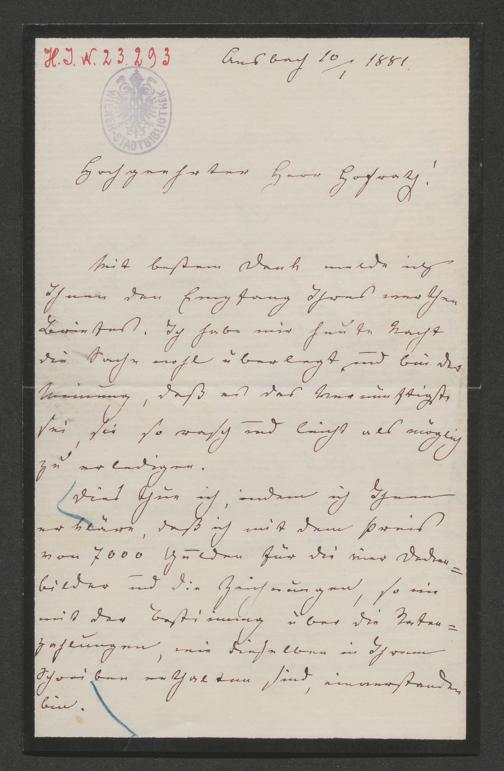 H. I. N. 23.293
Ansbach 10/1 1881.
WIENER-STADTBIBLIOTHEK
Hochgeehrter Herr Hofrath!
Mit bestem Dank melde ich
Ihnen den Empfang Ihres werthen
Briefes. Ich habe mir heute Nacht
die Sache wohl überlegt und bin der
Meinung, daß es das Vernünftigste
sei, sie so rasch und leicht als möglich
zu erledigen.
Dies thue ich, indem ich Ihnen
erkläre, daß ich mit dem Preis
von 7000 Gulden für die vier Decken=
bilder und die Zeichnungen, so wie
mit der Bestimmung über die Raten=
zahlungen, wie dieselben in Ihrem
Schreiben enthalten sind, einverstanden
bin.